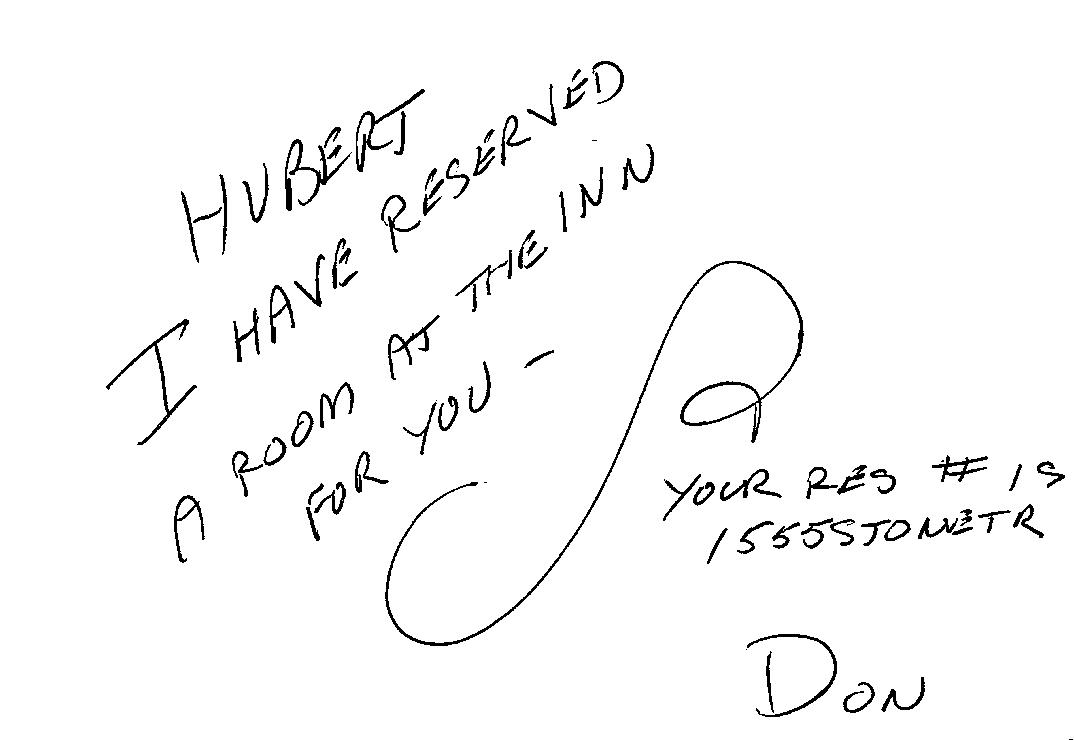 HUBERT
I HAVE RESERVED
A ROOM AT THE INN
FOR YOU -
YOUR RES # IS
1555STONETR
DON